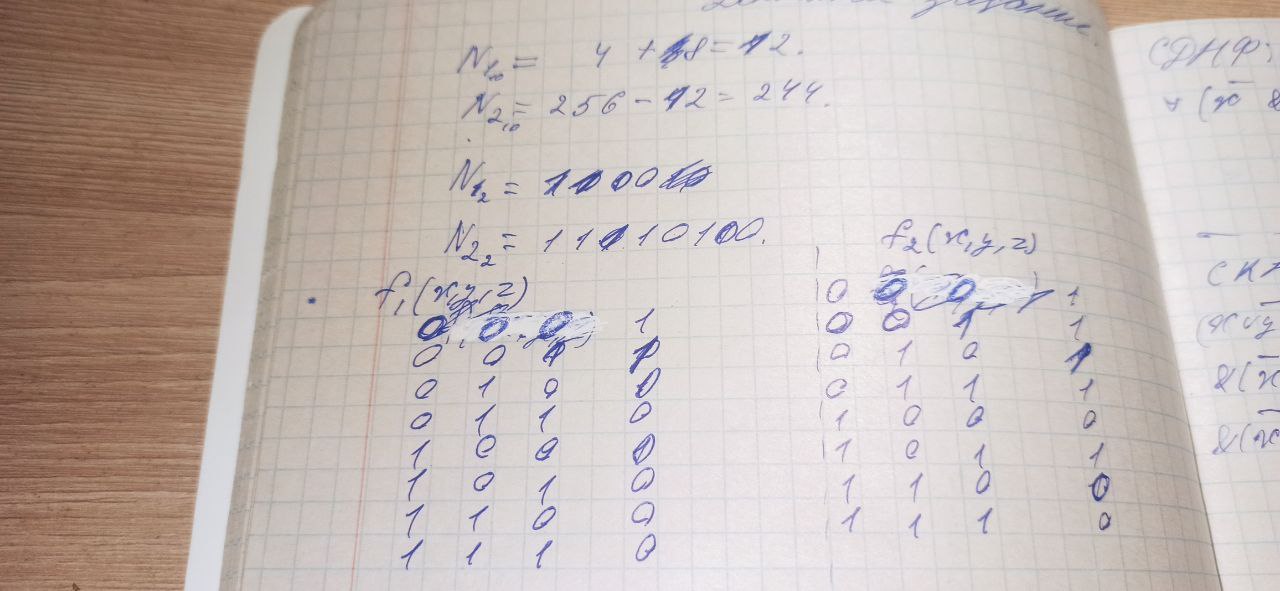 задание.
N₁₁₀ = 4 + 8 = 12.
N₂₁₀ = 256 - 12 = 244.
N₁₂ = 1100
N₂₂ = 11110100.
f₁(x,y,z)
0 0 0 1
0 0 1 1
0 1 0 0
0 1 1 0
1 0 0 0
1 0 1 0
1 1 0 0
1 1 1 0
f₂(x,y,z)
0 0 0 1
0 0 1 1
0 1 0 1
0 1 1 1
1 0 0 0
1 0 1 1
1 1 0 0
1 1 1 0
СДНФ:
∨ (x̄ &
СК
(x∨ȳ
&(x̄
&(x̄